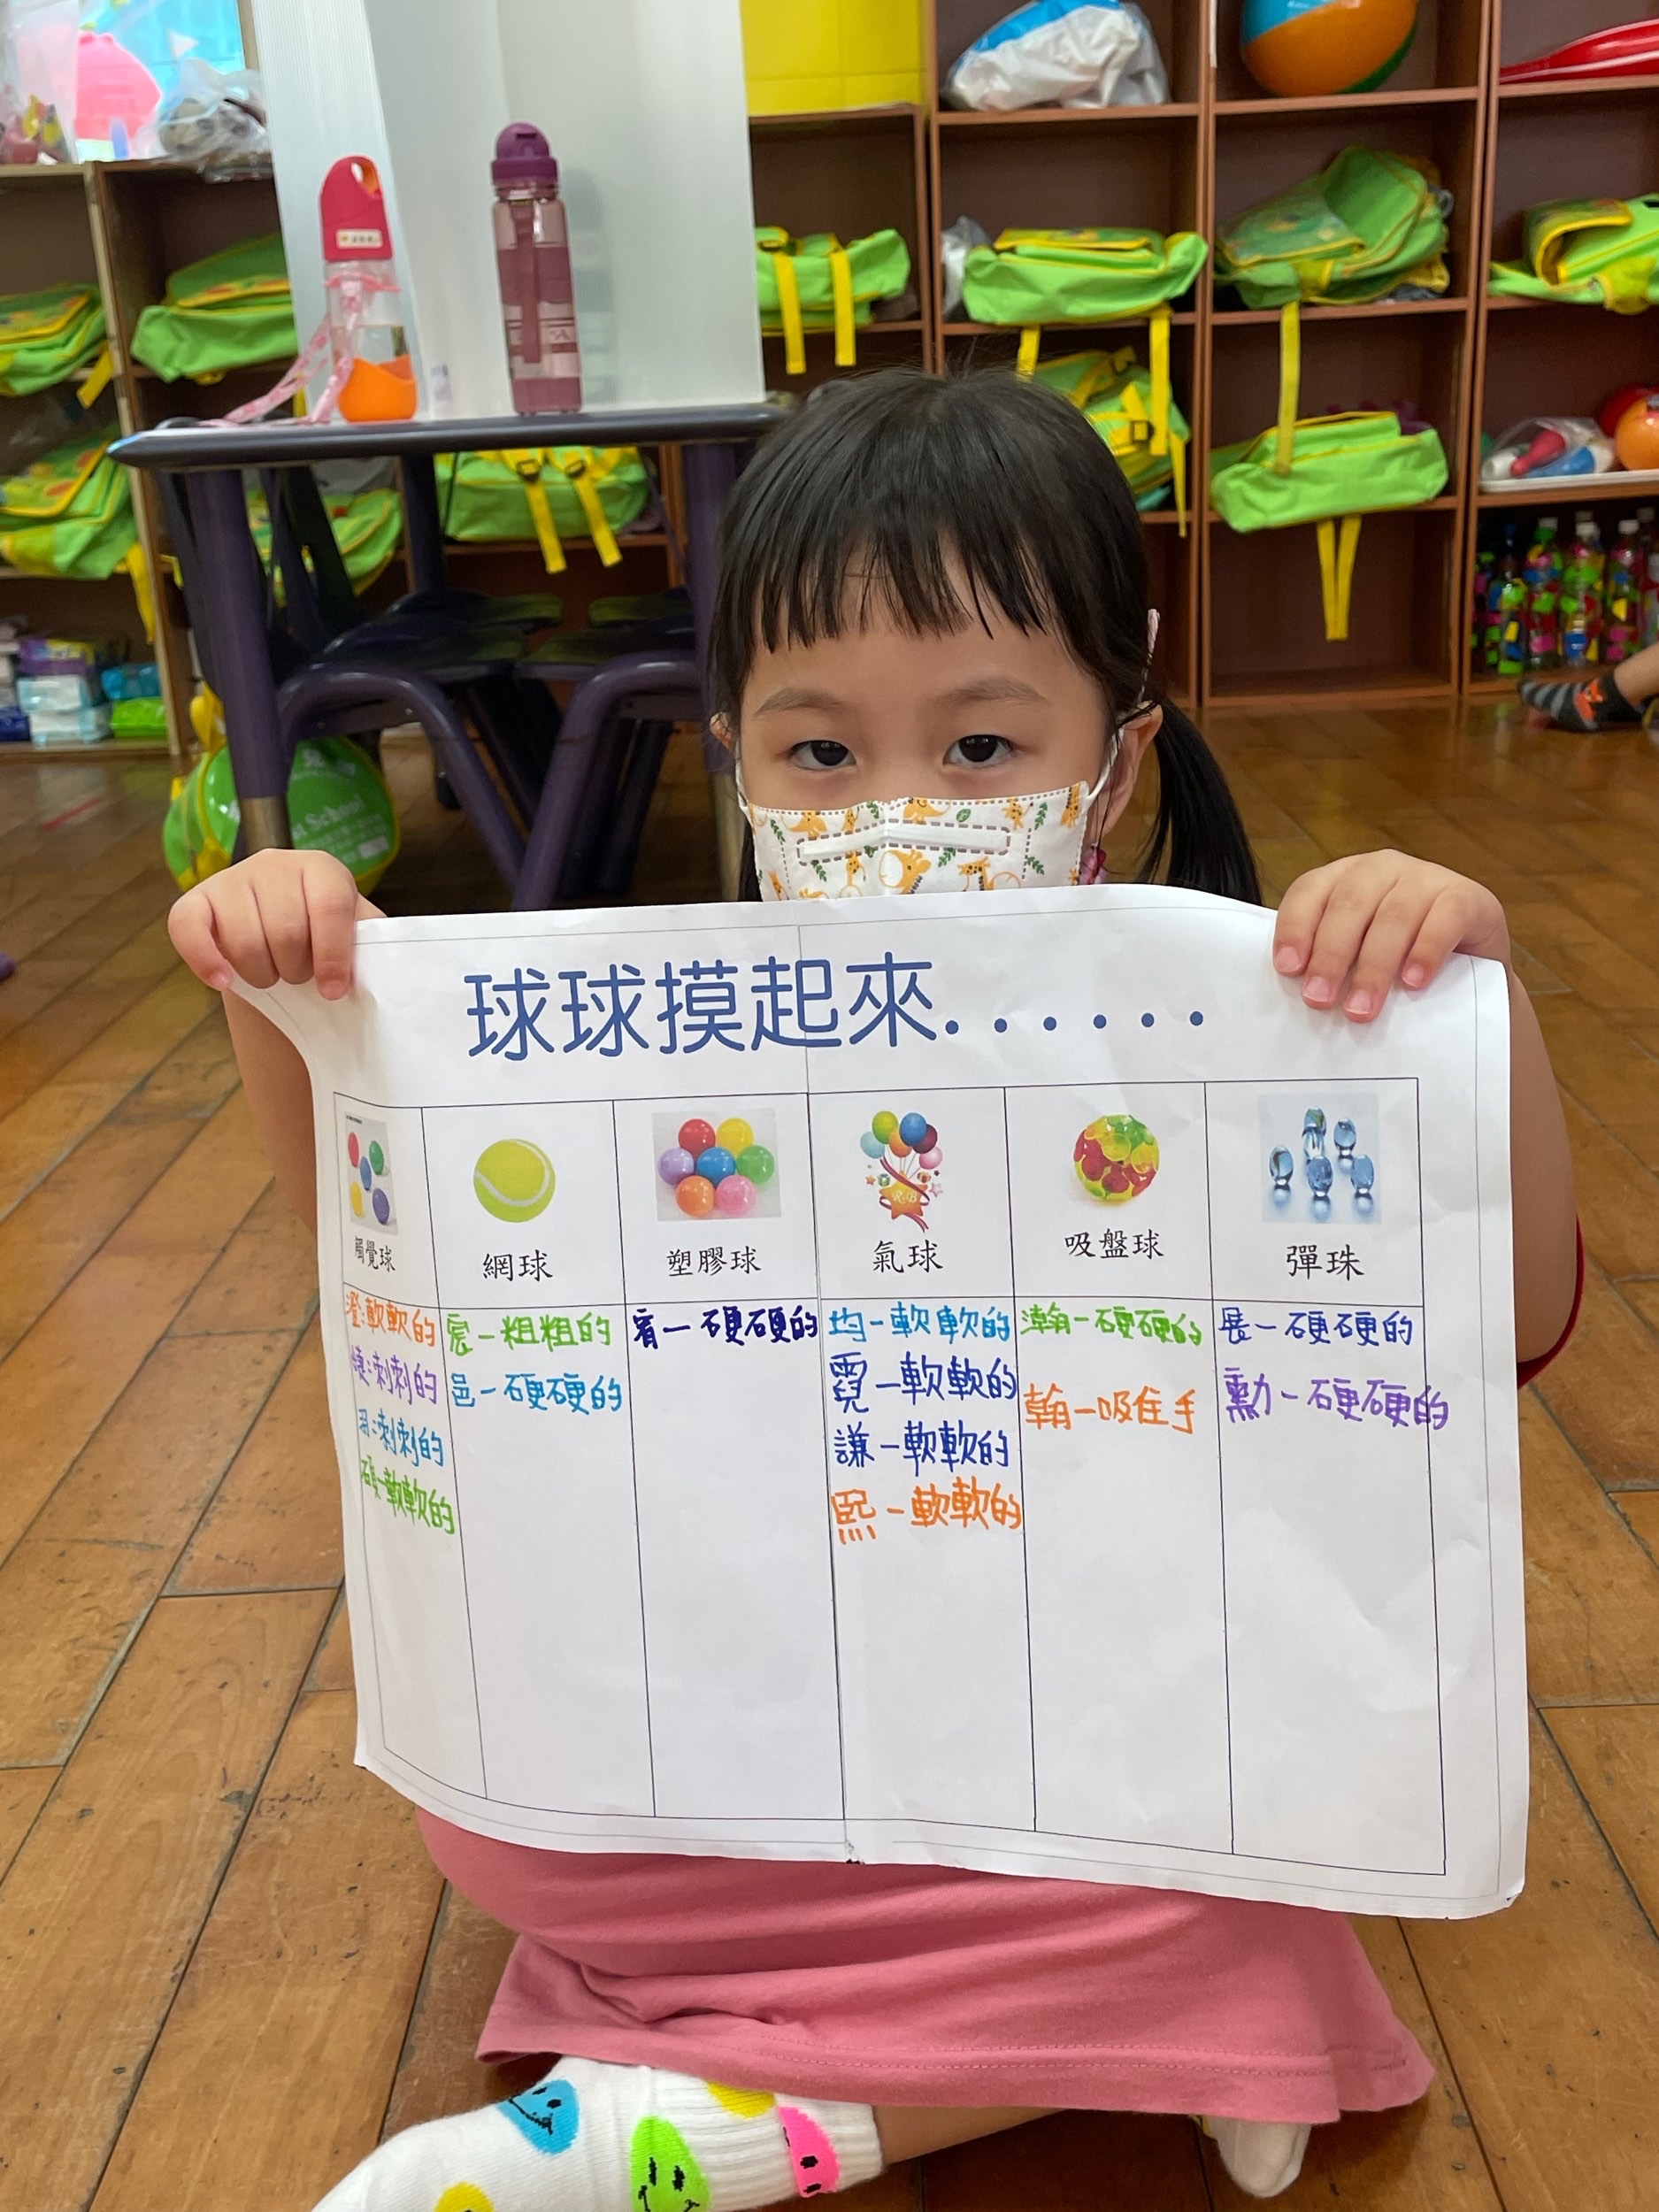 球球摸起來......
觸覺球
網球
塑膠球
氣球
吸盤球
彈珠
澄:軟軟的
刺刺的
刺刺的
軟軟的
宸-粗粗的
邑-硬硬的
宥-硬硬的
均-軟軟的
霓-軟軟的
謙-軟軟的
熙-軟軟的
瀚-硬硬的
翰-吸住手
展-硬硬的
勳-硬硬的
School